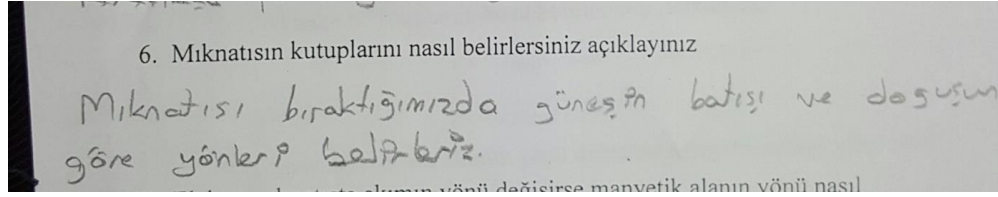 6. Mıknatısın kutuplarını nasıl belirlersiniz açıklayınız
Mıknatısı bıraktığımızda güneşin batışı ve doguşun
göre yönleri belirleriz.
alanın yönü nasıl